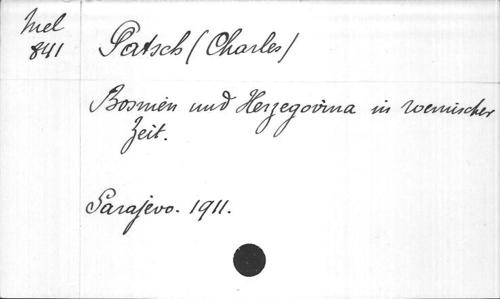 Mel
841
Patsch (Charles)
Bosnien und Herzegovina in roemischer
Zeit.
Sarajevo. 1911.